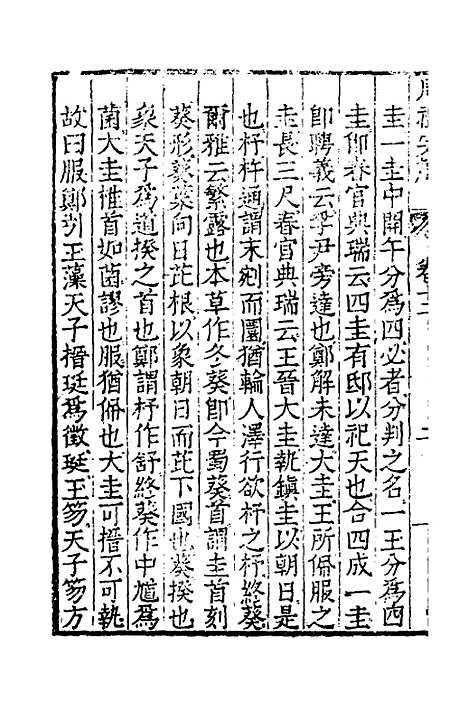 圭一圭中開午分爲四必者分判之名一王分爲四
圭卽春官典瑞云四圭有邸以祀天也合四成一圭
卽聘義云孚尹旁達也鄭解未達大圭王所佩服之
圭長三尺春官典瑞云王晉大圭執鎭圭以朝日是
也杼杵通謂末剡而圜猶輪人澤行欲杼之杼終葵
爾雅云繁露也本草作冬葵卽今蜀葵首謂圭首刻
葵形葵葉向日茈根以象朝日而茈下國也葵揆也
象天子爲道揆之首也鄭謂杼作舒終葵作中馗爲
菌大圭惟首如菌謬也服猶佩也大圭可搢不可執
故曰服鄭列玉藻天子搢珽爲徵珽王笏天子笏方